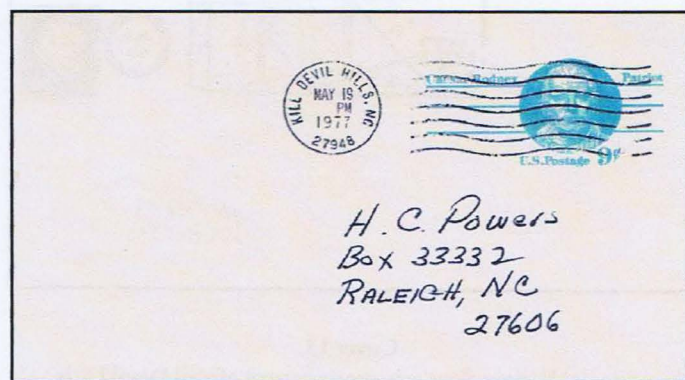 KILL DEVIL HILLS, NC
MAY 19
PM
1977
27948
Caesar Rodney Patriot
U.S. Postage 9¢
H. C. Powers
Box 33332
RALEIGH, NC
27606